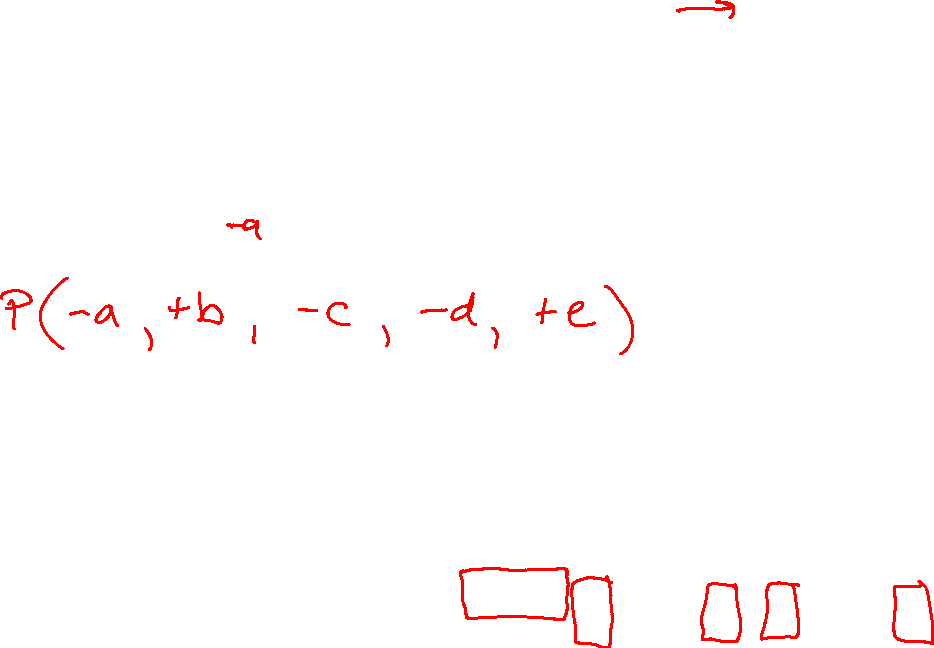 -a
P(-a, +b, -c, -d, +e)